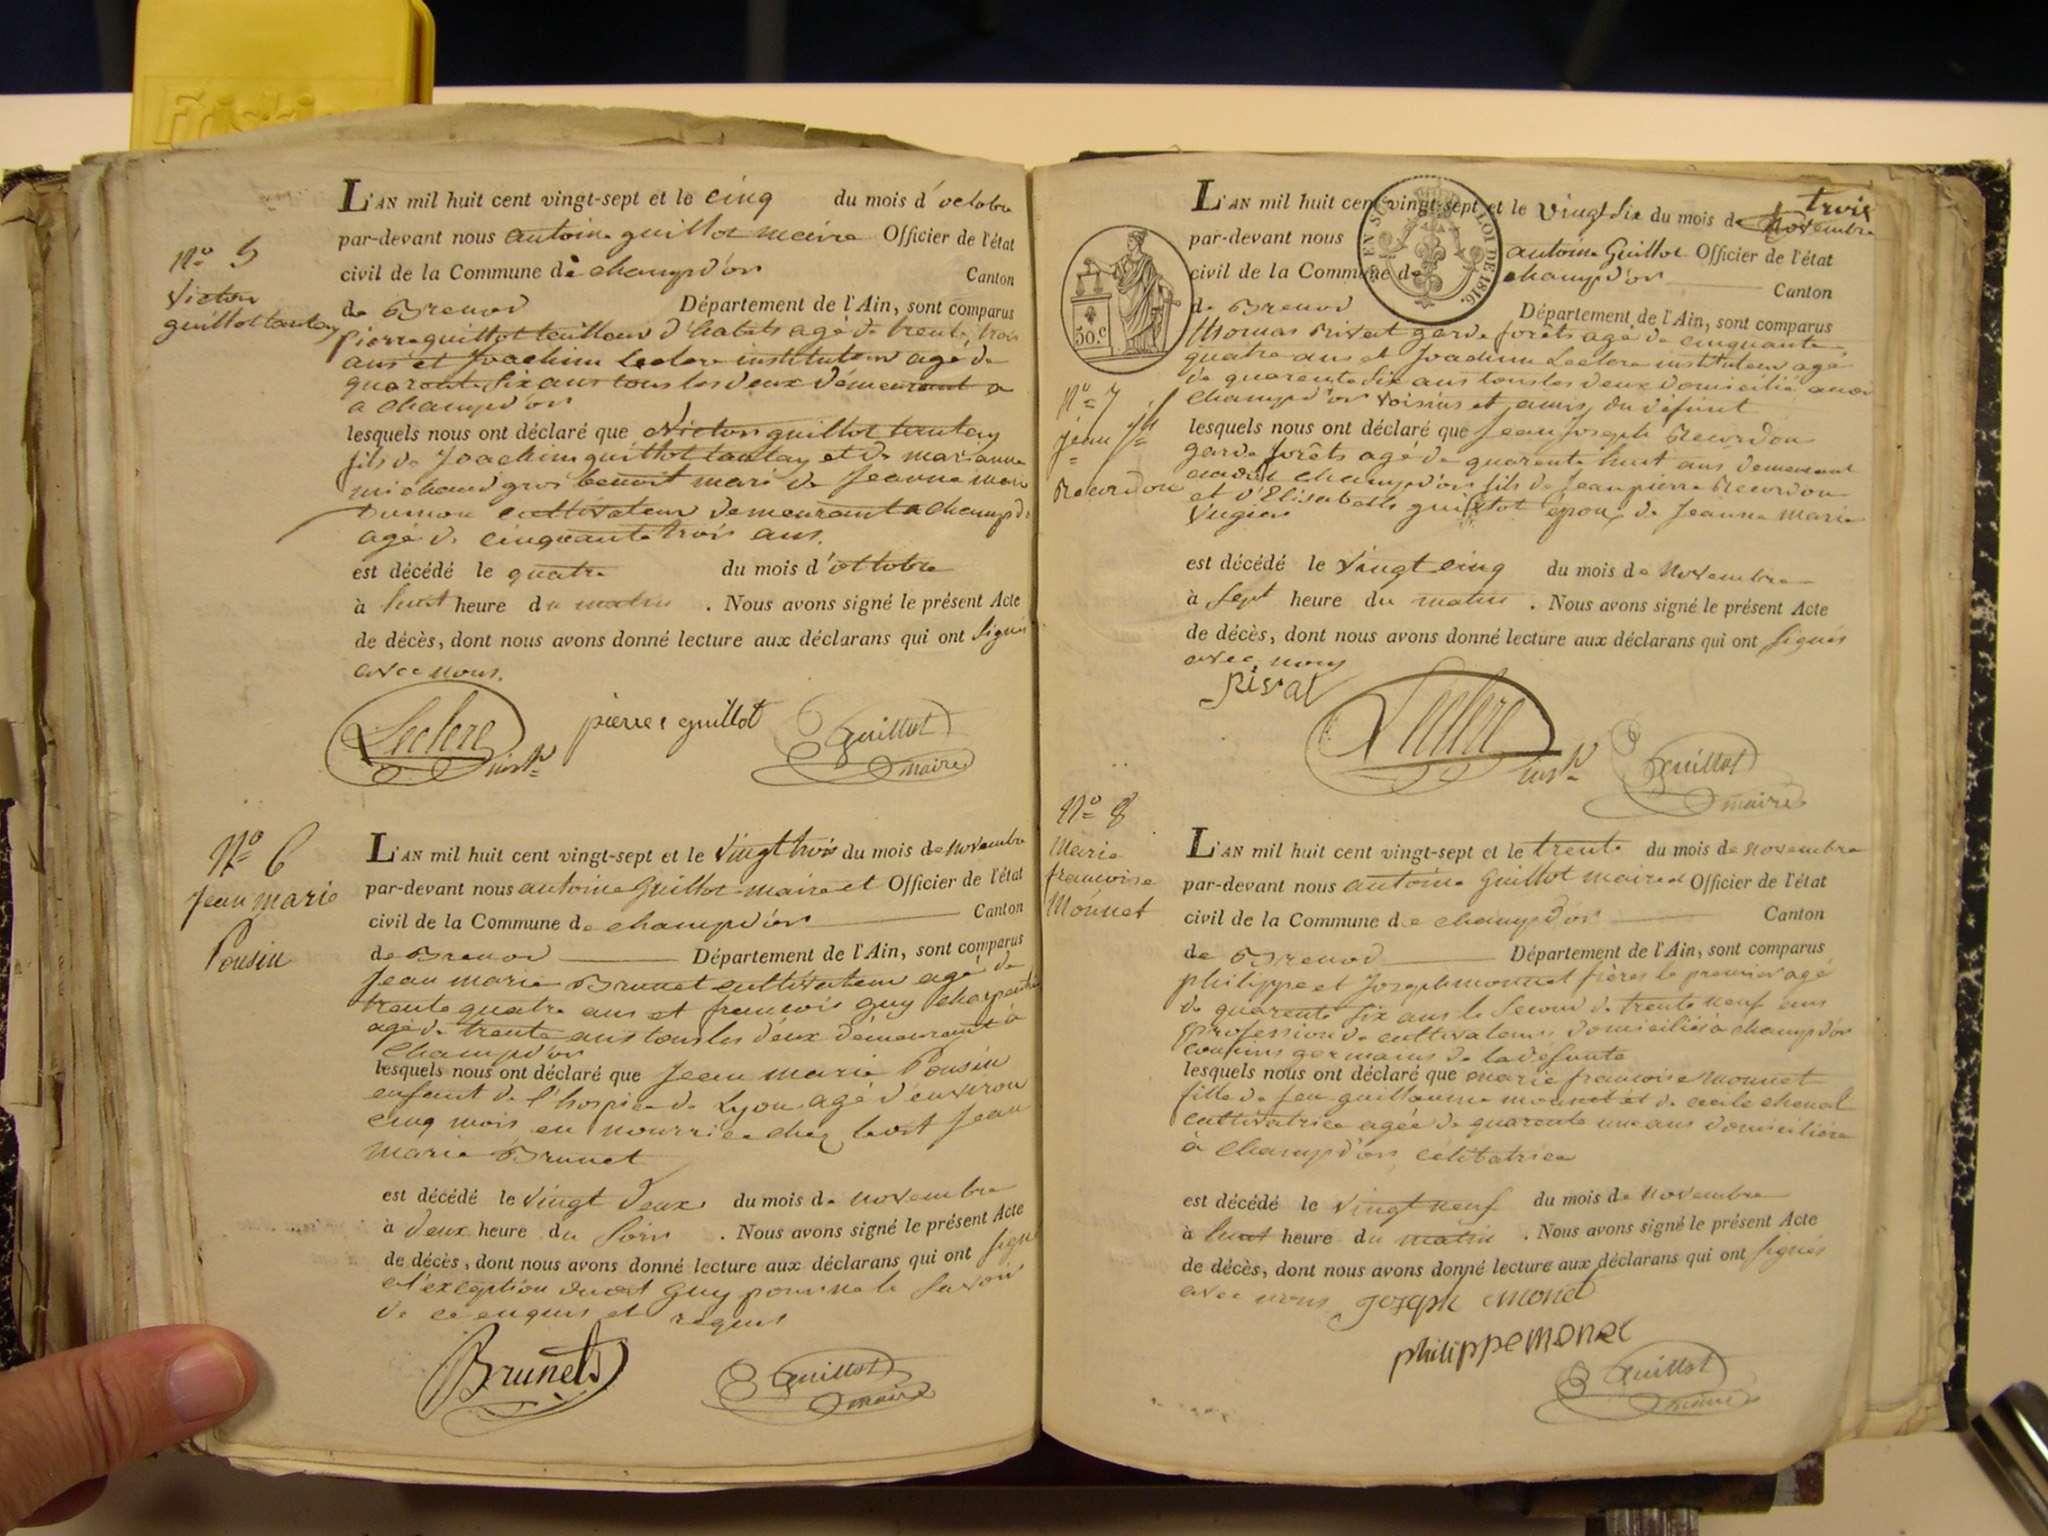 L'AN mil huit cent vingt-sept et le cinq du mois d'octobre
par-devant nous antoine guillot maire Officier de l'état
civil de la Commune de champd'or Canton
de Brenod Département de l'Ain, sont comparus
N.o 5
Victor
guillot tantay
pierre guillot tailleur d'habits agé de trente trois
ans et Joachim Leclere instituteur agé de
quarente six ans tous les deux demeurant a
a champd'or
lesquels nous ont déclaré que Victor guillot tantay
fils de Joachim guillot tantay et de marianne
michaud gros benoit mari de Jeanne marie
cultivateur demeurant a champd'or
agé de cinquante trois ans.
est décédé le quatre du mois d'octobre
à huit heure du matin . Nous avons signé le présent Acte
de décès, dont nous avons donné lecture aux déclarans qui ont signés
avec nous.
Leclere inst.r pierre guillot Guillot
maire
N.o 6
Jean marie
Pousin
L'AN mil huit cent vingt-sept et le vingt trois du mois de novembre
par-devant nous antoine Guillot maire et Officier de l'état
civil de la Commune de champd'or Canton
de Brenod Département de l'Ain, sont comparus
Jean marie Brunet cultivateur agé de
trente quatre ans et francois guy charpentier
agé de trente ans tous les deux demeurant à
champd'or
lesquels nous ont déclaré que Jean marie Pousin
enfant de l'hospice de Lyon agé d'environ
cinq mois en nourrice chez Jean
marie Brunet
est décédé le vingt deux du mois de novembre
à deux heure du soir . Nous avons signé le présent Acte
de décès, dont nous avons donné lecture aux déclarans qui ont signé
a l'exception dudit Guy pour ne le savoir
de ce enquis et requis
Brunet Guillot
maire
trois
L'AN mil huit cent vingt-sept et le vingt six du mois de Novembre
par-devant nous antoine Guillot Officier de l'état
civil de la Commune de champd'or Canton
de Brenod Département de l'Ain, sont comparus
EN SUS LOI DE 1816.
50.c
N.o 7
Jean J.ph
Recordon
thomas Rivat garde forêts agé de cinquante
quatre ans et Joachim Leclere instituteur agé
de quarente six ans tous les deux domicilié audit
champd'or voisins et amis du défunt
lesquels nous ont déclaré que Jean Joseph Recordon
garde forêts agé de quarente huit ans demeurant
audit champd'or fils de Jean pierre Recordon
et d'Elisabeth guillot époux de Jeanne marie
est décédé le vingt cinq du mois de Novembre
à sept heure du matin . Nous avons signé le présent Acte
de décès, dont nous avons donné lecture aux déclarans qui ont signés
avec nous
Rivat Leclere inst.r Guillot
maire
N.o 8
Marie
francoise
Monnet
L'AN mil huit cent vingt-sept et le trente du mois de novembre
par-devant nous antoine Guillot maire et Officier de l'état
civil de la Commune de champd'or Canton
de Brenod Département de l'Ain, sont comparus
philippe et Joseph monnet frères le premier agé
de quarente six ans le second de trente neuf ans
profession de cultivateurs domiciliés à champd'or
cousins germains de la défunte
lesquels nous ont déclaré que marie francoise monnet
fille de feu guillaume monnet et de cecile
cultivatrice agée de quarente un ans domiciliée
à champd'or célibatrice
est décédé le vingt neuf du mois de novembre
à huit heure du matin . Nous avons signé le présent Acte
de décès, dont nous avons donné lecture aux déclarans qui ont signés
avec nous joseph monet
philippe monet
Guillot
maire